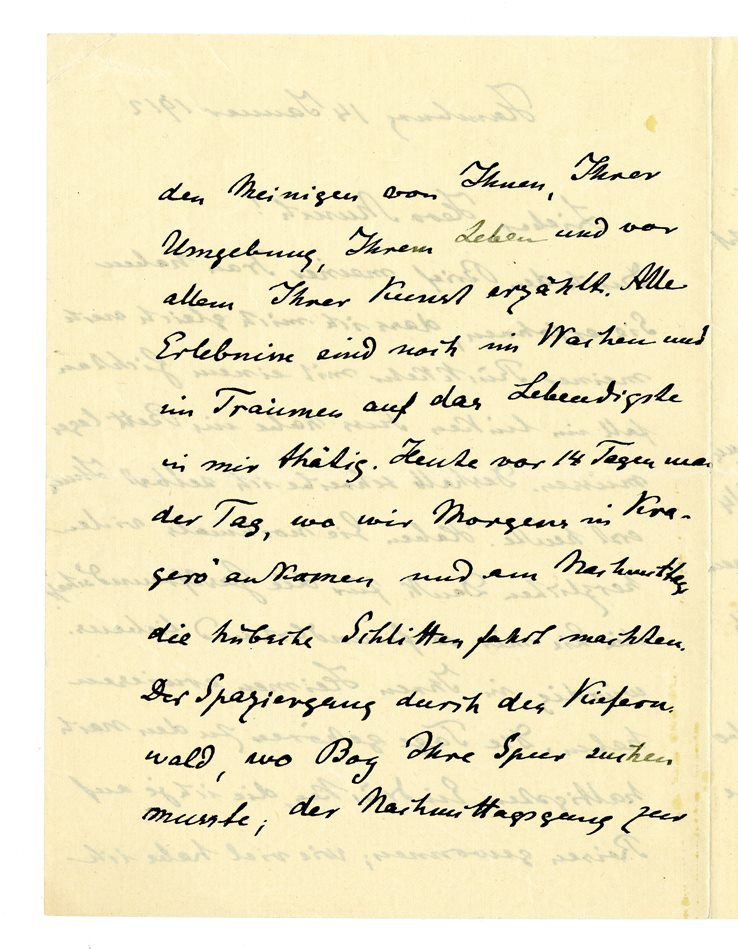 den Meinigen von Ihnen, Ihrer
Umgebung, Ihrem Leben und vor
allem Ihrer Kunst erzählt. Alle
Erlebnisse sind noch im Wachen und
im Träumen auf das Lebendigste
in mir thätig. Heute vor 14 Tagen war
der Tag, wo wir Morgens in Kra-
gerö ankamen und am Nachmittag
die hübsche Schlittenfahrt machten.
Der Spaziergang durch den Kiefern-
wald, wo Boy Ihre Spur suchen
musste, der Nachmittagsgang zur